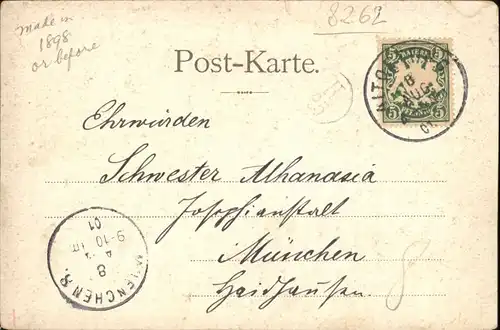 made in
1898
or before
8262
Post-Karte.
BAYERN
5 5
5 5
8
AUG
01
Ehrwürden
Schwester Athanasia
Josephianstalt
München
Haidhausen.
MUENCHEN
8
9-10
01